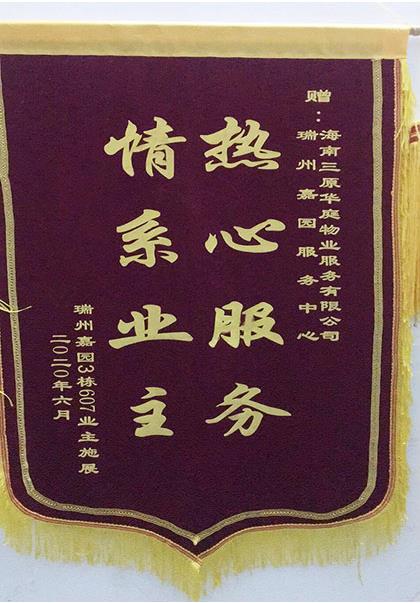 赠：
海南三原华庭物业服务有限公司
瑞州嘉园服务中心
热心服务
情系业主
瑞州嘉园3栋607业主施展
二〇二〇年六月